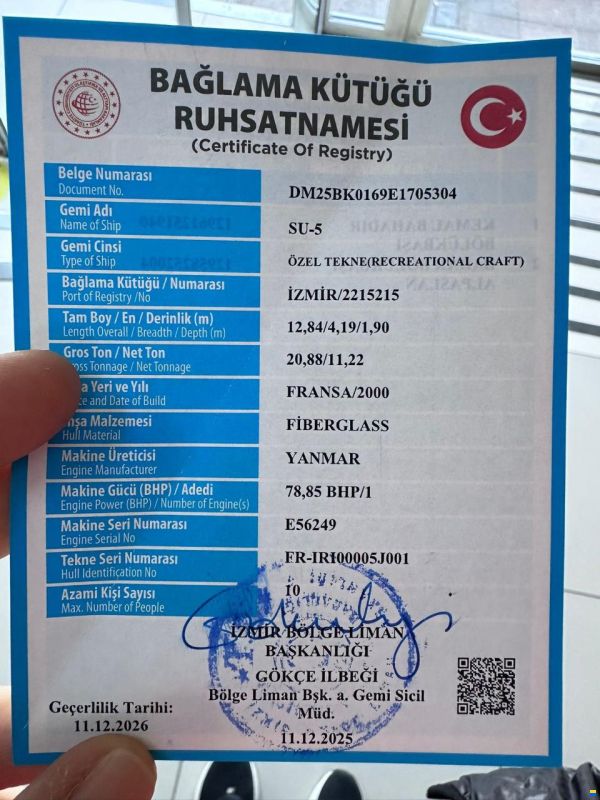 BAĞLAMA KÜTÜĞÜ
RUHSATNAMESİ
(Certificate Of Registry)
Belge Numarası
Document No.
DM25BK0169E1705304
Gemi Adı
Name of Ship
SU-5
Gemi Cinsi
Type of Ship
ÖZEL TEKNE(RECREATIONAL CRAFT)
Bağlama Kütüğü / Numarası
Port of Registry /No
İZMİR/2215215
Tam Boy / En / Derinlik (m)
Length Overall / Breadth / Depth (m)
12,84/4,19/1,90
Gros Ton / Net Ton
Tonnage / Net Tonnage
20,88/11,22
Yeri ve Yılı
and Date of Build
FRANSA/2000
Malzemesi
Hull Material
FİBERGLASS
Makine Üreticisi
Engine Manufacturer
YANMAR
Makine Gücü (BHP) / Adedi
Engine Power (BHP) / Number of Engine(s)
78,85 BHP/1
Makine Seri Numarası
Engine Serial No
E56249
Tekne Seri Numarası
Hull Identification No
FR-IRI00005J001
Azami Kişi Sayısı
Max. Number of People
10
İZMİR BÖLGE LİMAN
BAŞKANLIĞI
GÖKÇE İLBEĞİ
Bölge Liman Bşk. a. Gemi Sicil
Müd.
11.12.2025
Geçerlilik Tarihi:
11.12.2026